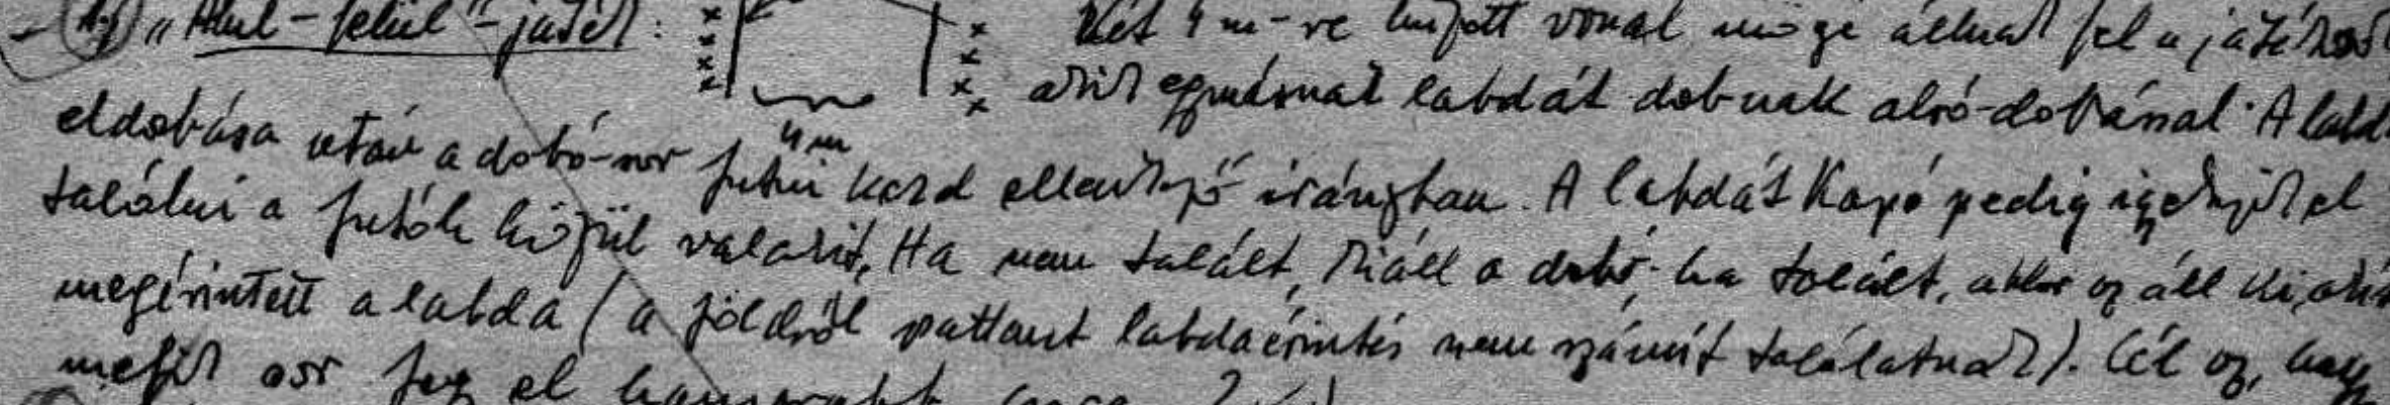 „Alul-felül"-játék: Két 4 m-re húzott vonal mögé állnak fel a játékos
akik egymásnak labdát dobnak alsó-dobással. A labd
4 m
eldobása után a dobó-sor futni kezd ellenkező irányban. A labdát kapó pedig igyekszik el
találni a futók közül valakit. Ha nem talált, kiáll a dobó, ha talált, akkor az áll ki, akit
megérintett a labda (a földről pattant labdaérintés nem számít találatnak). Cél az, hogy
melyik sor fogy el hamarabb